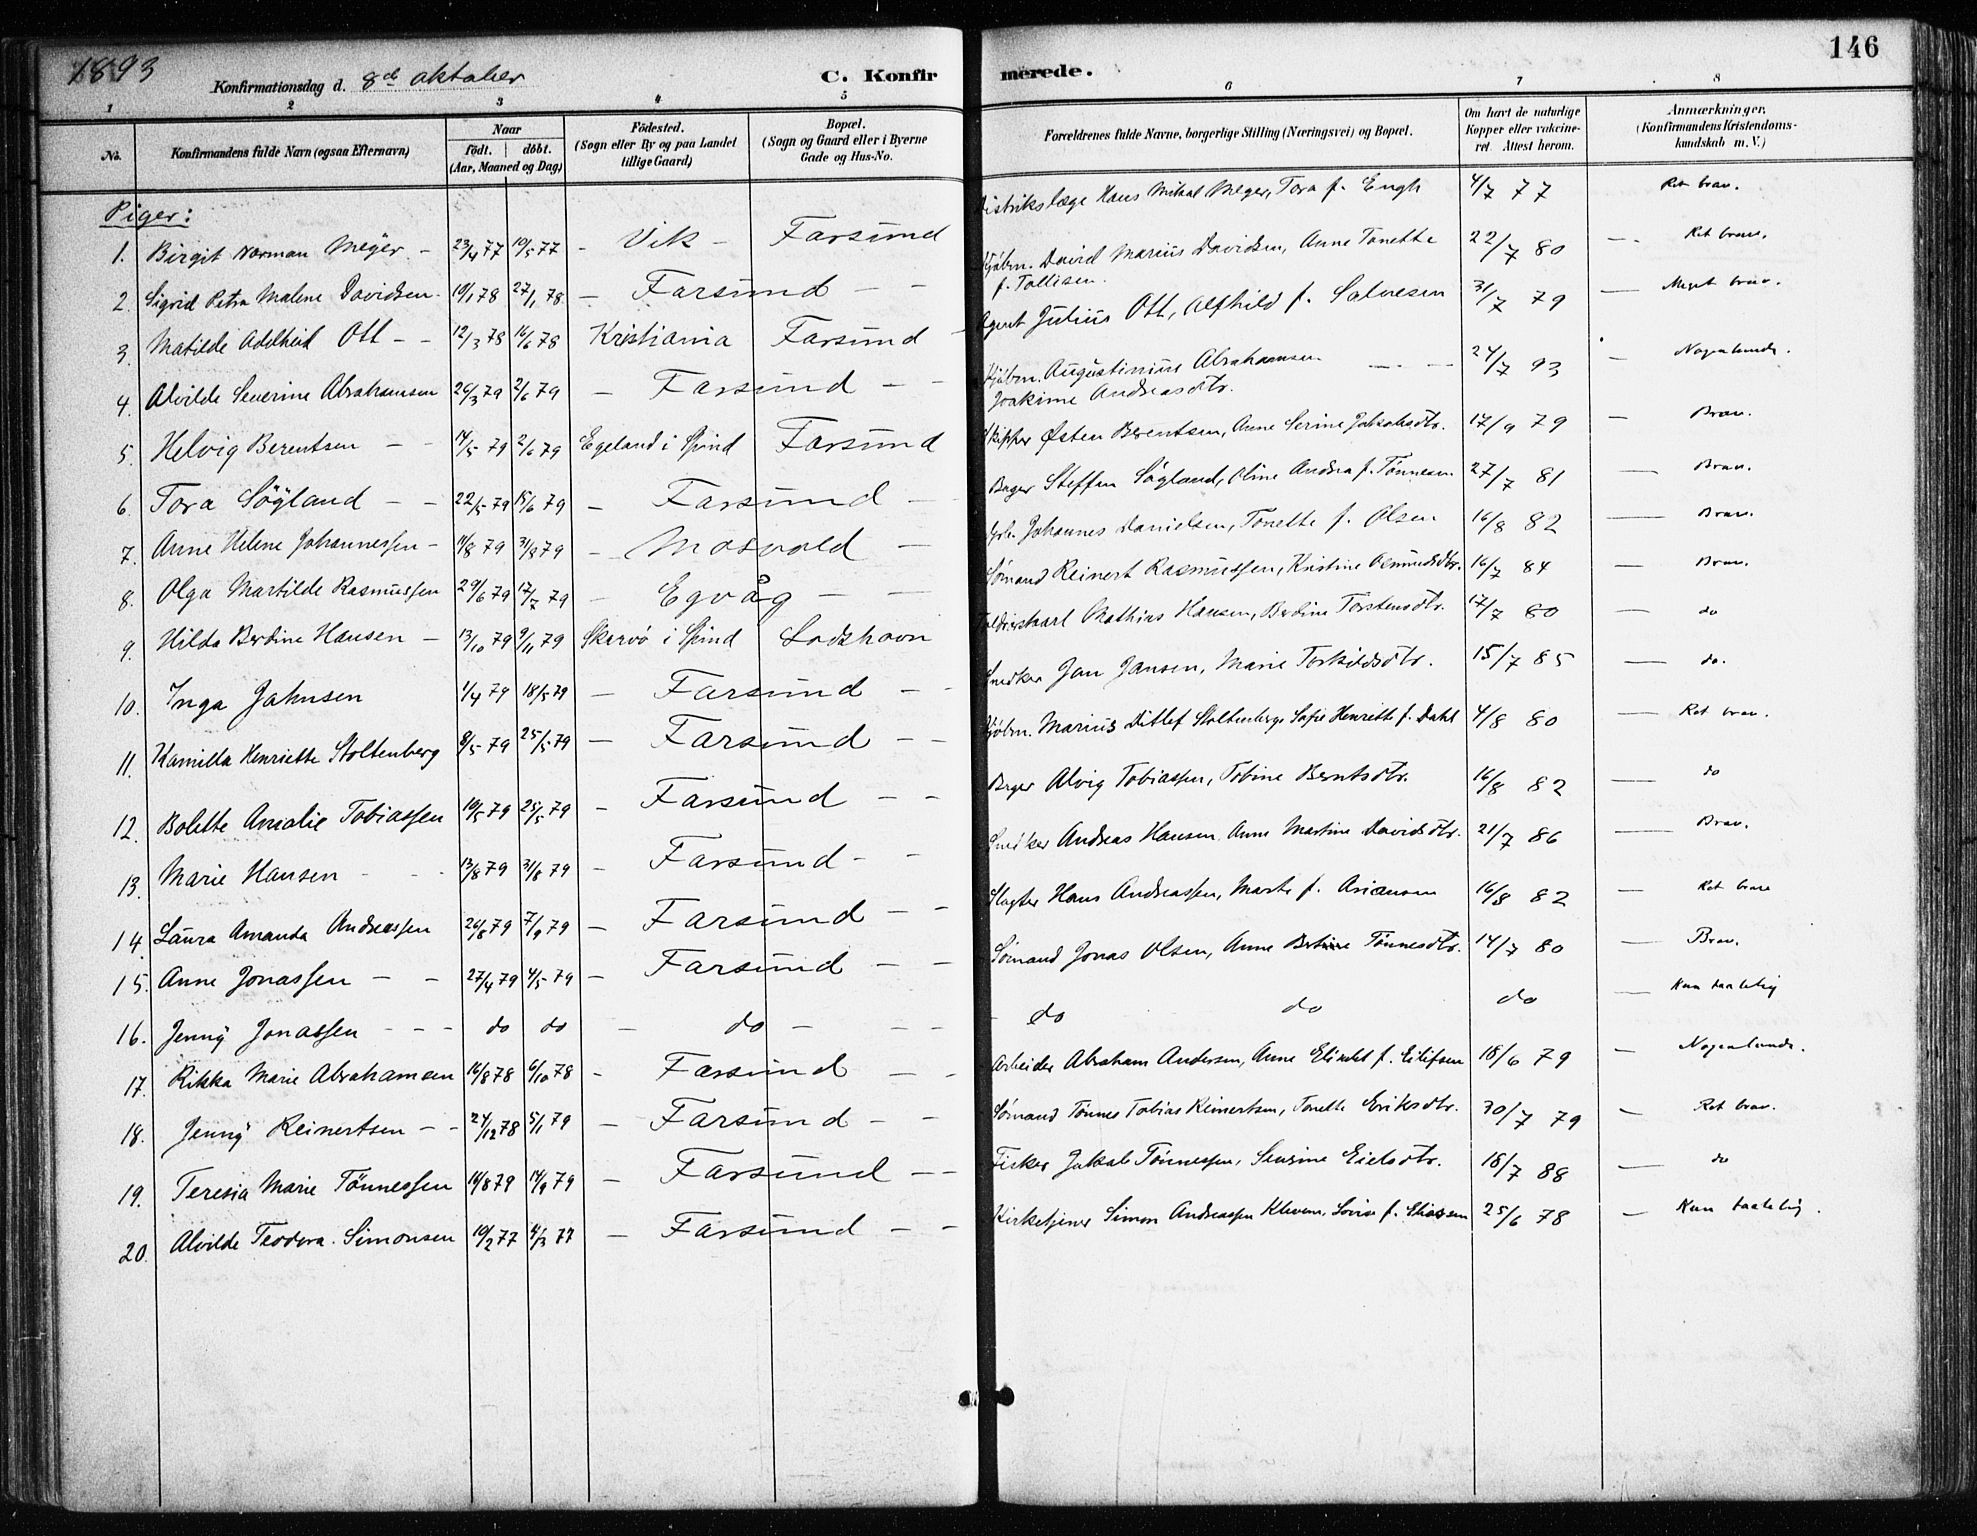 1893
146
Konfirmationsdag d. 8de oktober
C. Konfirmerede.
1 2 3 4 5 6 7 8
No. Konfirmandens fulde Navn (ogsaa Efternavn) Naar födt. döbt. (Aar, Maaned og Dag) Födested. (Sogn eller By og paa Landet tillige Gaard) Bopæl. (Sogn og Gaard eller i Byerne Gade og Hus-No. Forældrenes fulde Navne, borgerlige Stilling (Næringsvei) og Bopæl. Om havt de naturlige Kopper eller vakcineret. Attest herom. Anmærkninger. (Konfirmandens Kristendomskundskab m. V.)
Piger:
1. Birgit Norman Meyer - 23/4 77 10/5 77 - Vik - Farsund Distrikslæge Hans Mikal Meyer, Tora f. Engh 4/7 77 Ret brav.
2. Sigrid Petra Malene Davidsen 10/1 78 27/1 78 - Farsund - - Kjøbm. David Marius Davidsen, Anne Tonette f. Tollisen. 22/7 80 - Ret brav.
3. Matilde Adelheid Ott - - 12/3 78 16/6 78 Kristiania Farsund - Agent Julius Ott, Alfhild f. Salvesen 31/7 79 - Meget brav.
4. Alvilde Severine Abrahamsen 26/3 79 2/6 79 - Farsund - - Kjøbm. Augustinius Abrahamsen Joakime Andreasdtr. 24/7 93 - Nogenlunde.
5. Helvig Berentsen - - 14/5 79 2/6 79 Egeland i Spind Farsund Skipper Østen Berentsen, Anne Serine Jakobsdtr. 17/9 79 - Brav.
6. Tora Sögland - - 22/5 79 15/6 79 - Farsund - Bager Steffen Sögland, Oline Andrea f. Tönnesen 27/7 81 - Brav.
7. Anne Helene Johannessen - 11/8 79 31/8 79 - Mosvold - Johannes Danielsen, Tonette f. Olsen 16/8 82 - Brav.
8. Olga Martilde Rasmussen 29/6 79 17/7 79 - Egvåg - - Sømand Reinert Rasmussen, Kristine Osmundsdtr. 16/7 84 - Brav.
9. Hilda Berdine Hansen - 13/10 79 9/11 79 Skarvö i Spind Lodshavn Mathias Hansen, Berdine Torstensdtr. 17/7 80 - do
10. Inga Jahnsen 1/4 79 18/5 79 - Farsund - - Snedker Jan Jansen, Marie Torkildsdtr. 15/7 85 - do.
11. Kamilla Henriette Stoltenberg 8/5 79 25/5 79 - Farsund - - Kjøbm. Marius Ditlef Stoltenberg, Sofie Henriette f. Dahl 4/8 80 - Ret brav.
12. Bolette Amalie Tobiassen 10/5 79 25/5 79 - Farsund - - Bager Alvig Tobiassen, Tobine Berntsdtr. 16/8 82 - do
13. Marie Hansen - - 13/8 79 31/8 79 - Farsund - - Snedker Andreas Hansen, Anne Martine Davidsdtr. 21/7 86 - Brav.
14. Laura Amanda Andreassen 26/8 79 7/9 79 - Farsund - - Slagter Hans Andreassen, Marte f. Ariansen 16/8 82 - Ret brav
15. Anne Jonassen - - 27/4 79 4/5 79 - Farsund - - Sømand Jonas Olsen, Anne Tönnesdtr. 14/7 80 - Brav.
16. Jenny Jonassen - - - do do - do - - - do do do - Kun taalelig
17. Rikka Marie Abrahamsen 16/8 78 6/10 78 - Farsund - - Arbeider Abraham Andersen, Anne Elisabet f. Eilifsen 18/6 79 - Nogenlunde.
18. Jenny Reinertsen - - 24/12 78 5/1 79 - Farsund - - Sømand Tönnes Tobias Reinertsen, Tonette Eriksdtr. 30/7 79 - Ret brav.
19. Teresia Marie Tönnessen 11/8 79 14/9 79 - Farsund - - Fisker Jakob Tönnessen, Severine Eielsdtr. 18/7 88 - do
20. Alvilde Teodora Simonsen 10/2 77 4/3 77 - Farsund - - Kirketjener Simon Andreassen Kleven, Lovise f. 25/6 78 - Kun taalelig.